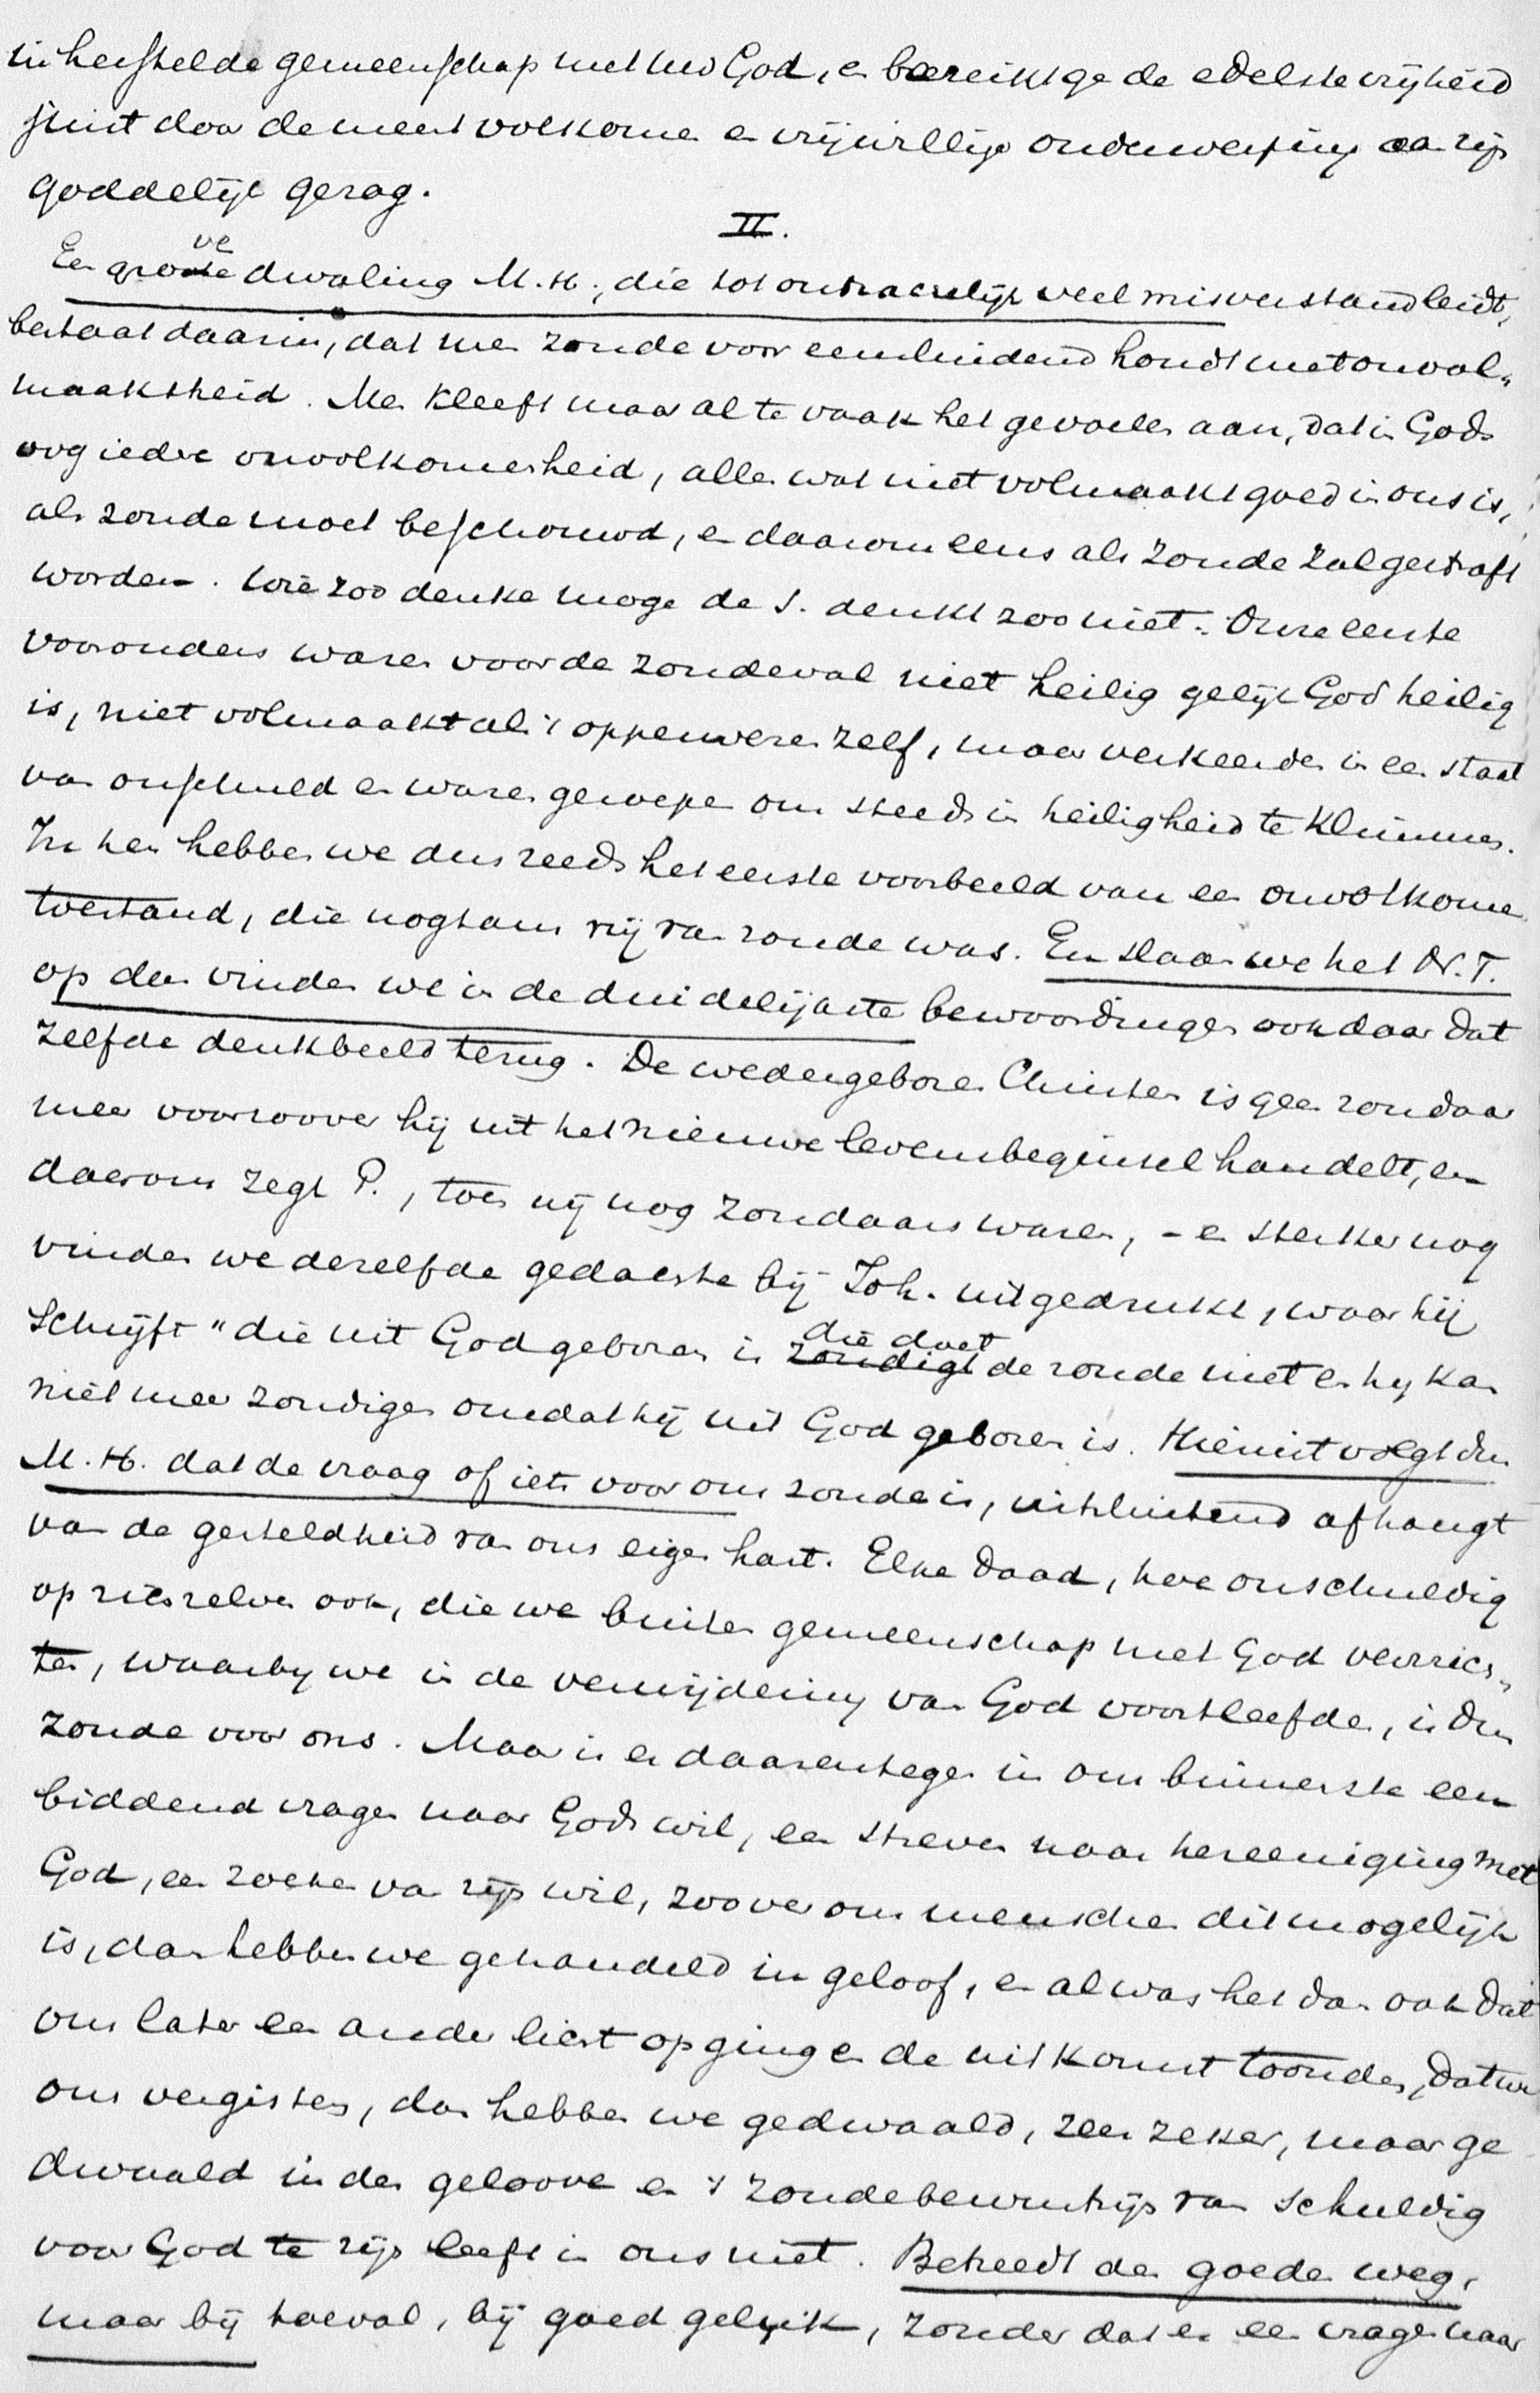 in herstelde gemeenschap met uw God, en bereikt ge de edelste vrijheid
juist door de meest volkomen en vrijwillige onderwerping aan zijn
goddelijk gezag.
II.
Een grove dwaling M.H., die tot ontzachelijk veel misverstand leidt,
bestaat daarin, dat men zonde voor eensluidend houdt met onvol„
maaktheid. Men kleeft maar al te vaak het gevoelen aan, dat in Gods
oog iedere onvolkomenheid, alles wat niet volmaakt goed in ons is,
als zonde moet beschouwd, en daarom eens als zonde zal gestraft
worden. Wie zoo denke moge de S. denkt zoo niet. Onze eerste
voorouders waren voor de zondeval niet heilig gelijk God heilig
is, niet volmaakt als 't opperwezen zelf, maar verkeerden in een staat
van onschuld en waren geroepen om steeds in heiligheid te klimmen.
In hen hebben we dus reeds het eerste voorbeeld van een onvolkomen
toestand, die nogtans vrij van zonde was. En slaan we het N.T.
op dan vinden we in de duidelijkste bewoordingen ook daar dat
zelfde denkbeeld terug. De wedergeboren Christen is geen zondaar
meer voorzoover hij uit het nieuwe levensbeginsel handelt, en
daarom zegt P., toen wij nog zondaars waren, - en sterker nog
vinden we dezelfde gedachte bij Joh. uitgedrukt, waar hij
schrijft "die uit God geboren is die doet de zonde niet en hij kan
niet meer zondigen omdat hij uit God geboren is. Hieruit volgt dus
M.H. dat de vraag of iets voor ons zonde is, uitsluitend afhangt
van de gesteldheid van ons eigen hart. Elke daad, hoe onschuldig
op zichzelve ook, die we buiten gemeenschap met God verrich„
ten, waarbij we in de verwijdering van God voortleefden, is dus
zonde voor ons. Maar is er daarentegen in ons binnenste een
biddend vragen naar Gods wil, een streven naar hereeniging met
God, een zoeken van zijn wil, zoover ons menschen dit mogelijk
is, dan hebben we gehandeld in geloof, en al was het dan ook dat
ons later een ander licht opging en de uitkomst toonde, dat we
ons vergisten, dan hebben we gedwaald, zeer zeker, maar ge
dwaald in den geloove en 't zondebewustzijn van schuldig
voor God te zijn leeft in ons niet. Betreedt den goeden weg,
maar bij toeval, bij goed geluk, zonder dat er een vragen naar